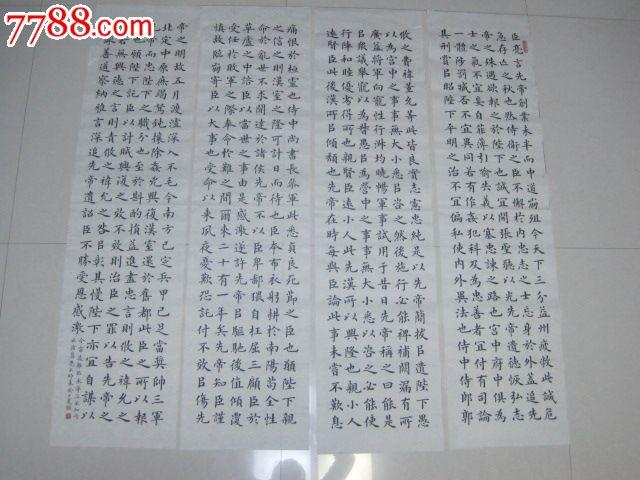 7788.com
臣亮言先帝創業未半而中道崩殂今天下三分益州疲敝此誠危
急存亡之秋也然侍衛之臣不懈於內忠志之士忘身於外蓋追先
帝之殊遇欲報之於陛下也誠宜開張聖聽以光先帝遺德恢弘志
士之氣不宜妄自菲薄引喻失義以塞忠諫之路也宮中府中俱為
一體陟罰臧否不宜異同若有作姦犯科及為忠善者宜付有司論
其刑賞以昭陛下平明之治不宜偏私使內外異法也侍中侍郎郭
攸之費禕董允等此皆良實志慮忠純是以先帝簡拔以遺陛下愚
以為宮中之事事無大小悉以咨之然後施行必能裨補闕漏有所
廣益將軍向寵性行淑均曉暢軍事試用於昔日先帝稱之曰能是
以眾議舉寵以為督愚以為營中之事事無大小悉以咨之必能使
行陣和睦優劣得所也親賢臣遠小人此先漢所以興隆也親小人
遠賢臣此後漢所以傾頹也先帝在時每與臣論此事未嘗不歎息
痛恨於桓靈也侍中尚書長史參軍此悉貞良死節之臣也願陛下親
之信之則漢室之隆可計日而待也臣本布衣躬耕於南陽苟全性
命於亂世不求聞達於諸侯先帝不以臣卑鄙猥自枉屈三顧臣於
草廬之中諮臣以當世之事由是感激遂許先帝以驅馳後值傾覆
受任於敗軍之際奉命於危難之間爾來二十有一年矣先帝知臣謹
慎故臨崩寄臣以大事也受命以來夙夜憂歎恐託付不效以傷先
帝之明故五月渡瀘深入不毛今南方已定兵甲已足當獎帥三軍
北定中原庶竭駑鈍攘除姦兇興復漢室還於舊都此臣之所以報
先帝而忠陛下之職分也至於斟酌損益進盡忠言則攸之禕允之
任也願陛下託臣以討賊興復之效不效則治臣之罪以告先帝之
靈若無興德之言則責攸之禕允等之慢以彰其咎陛下亦宜自謀以
諮諏善道察納雅言深追先帝遺詔臣不勝受恩感激